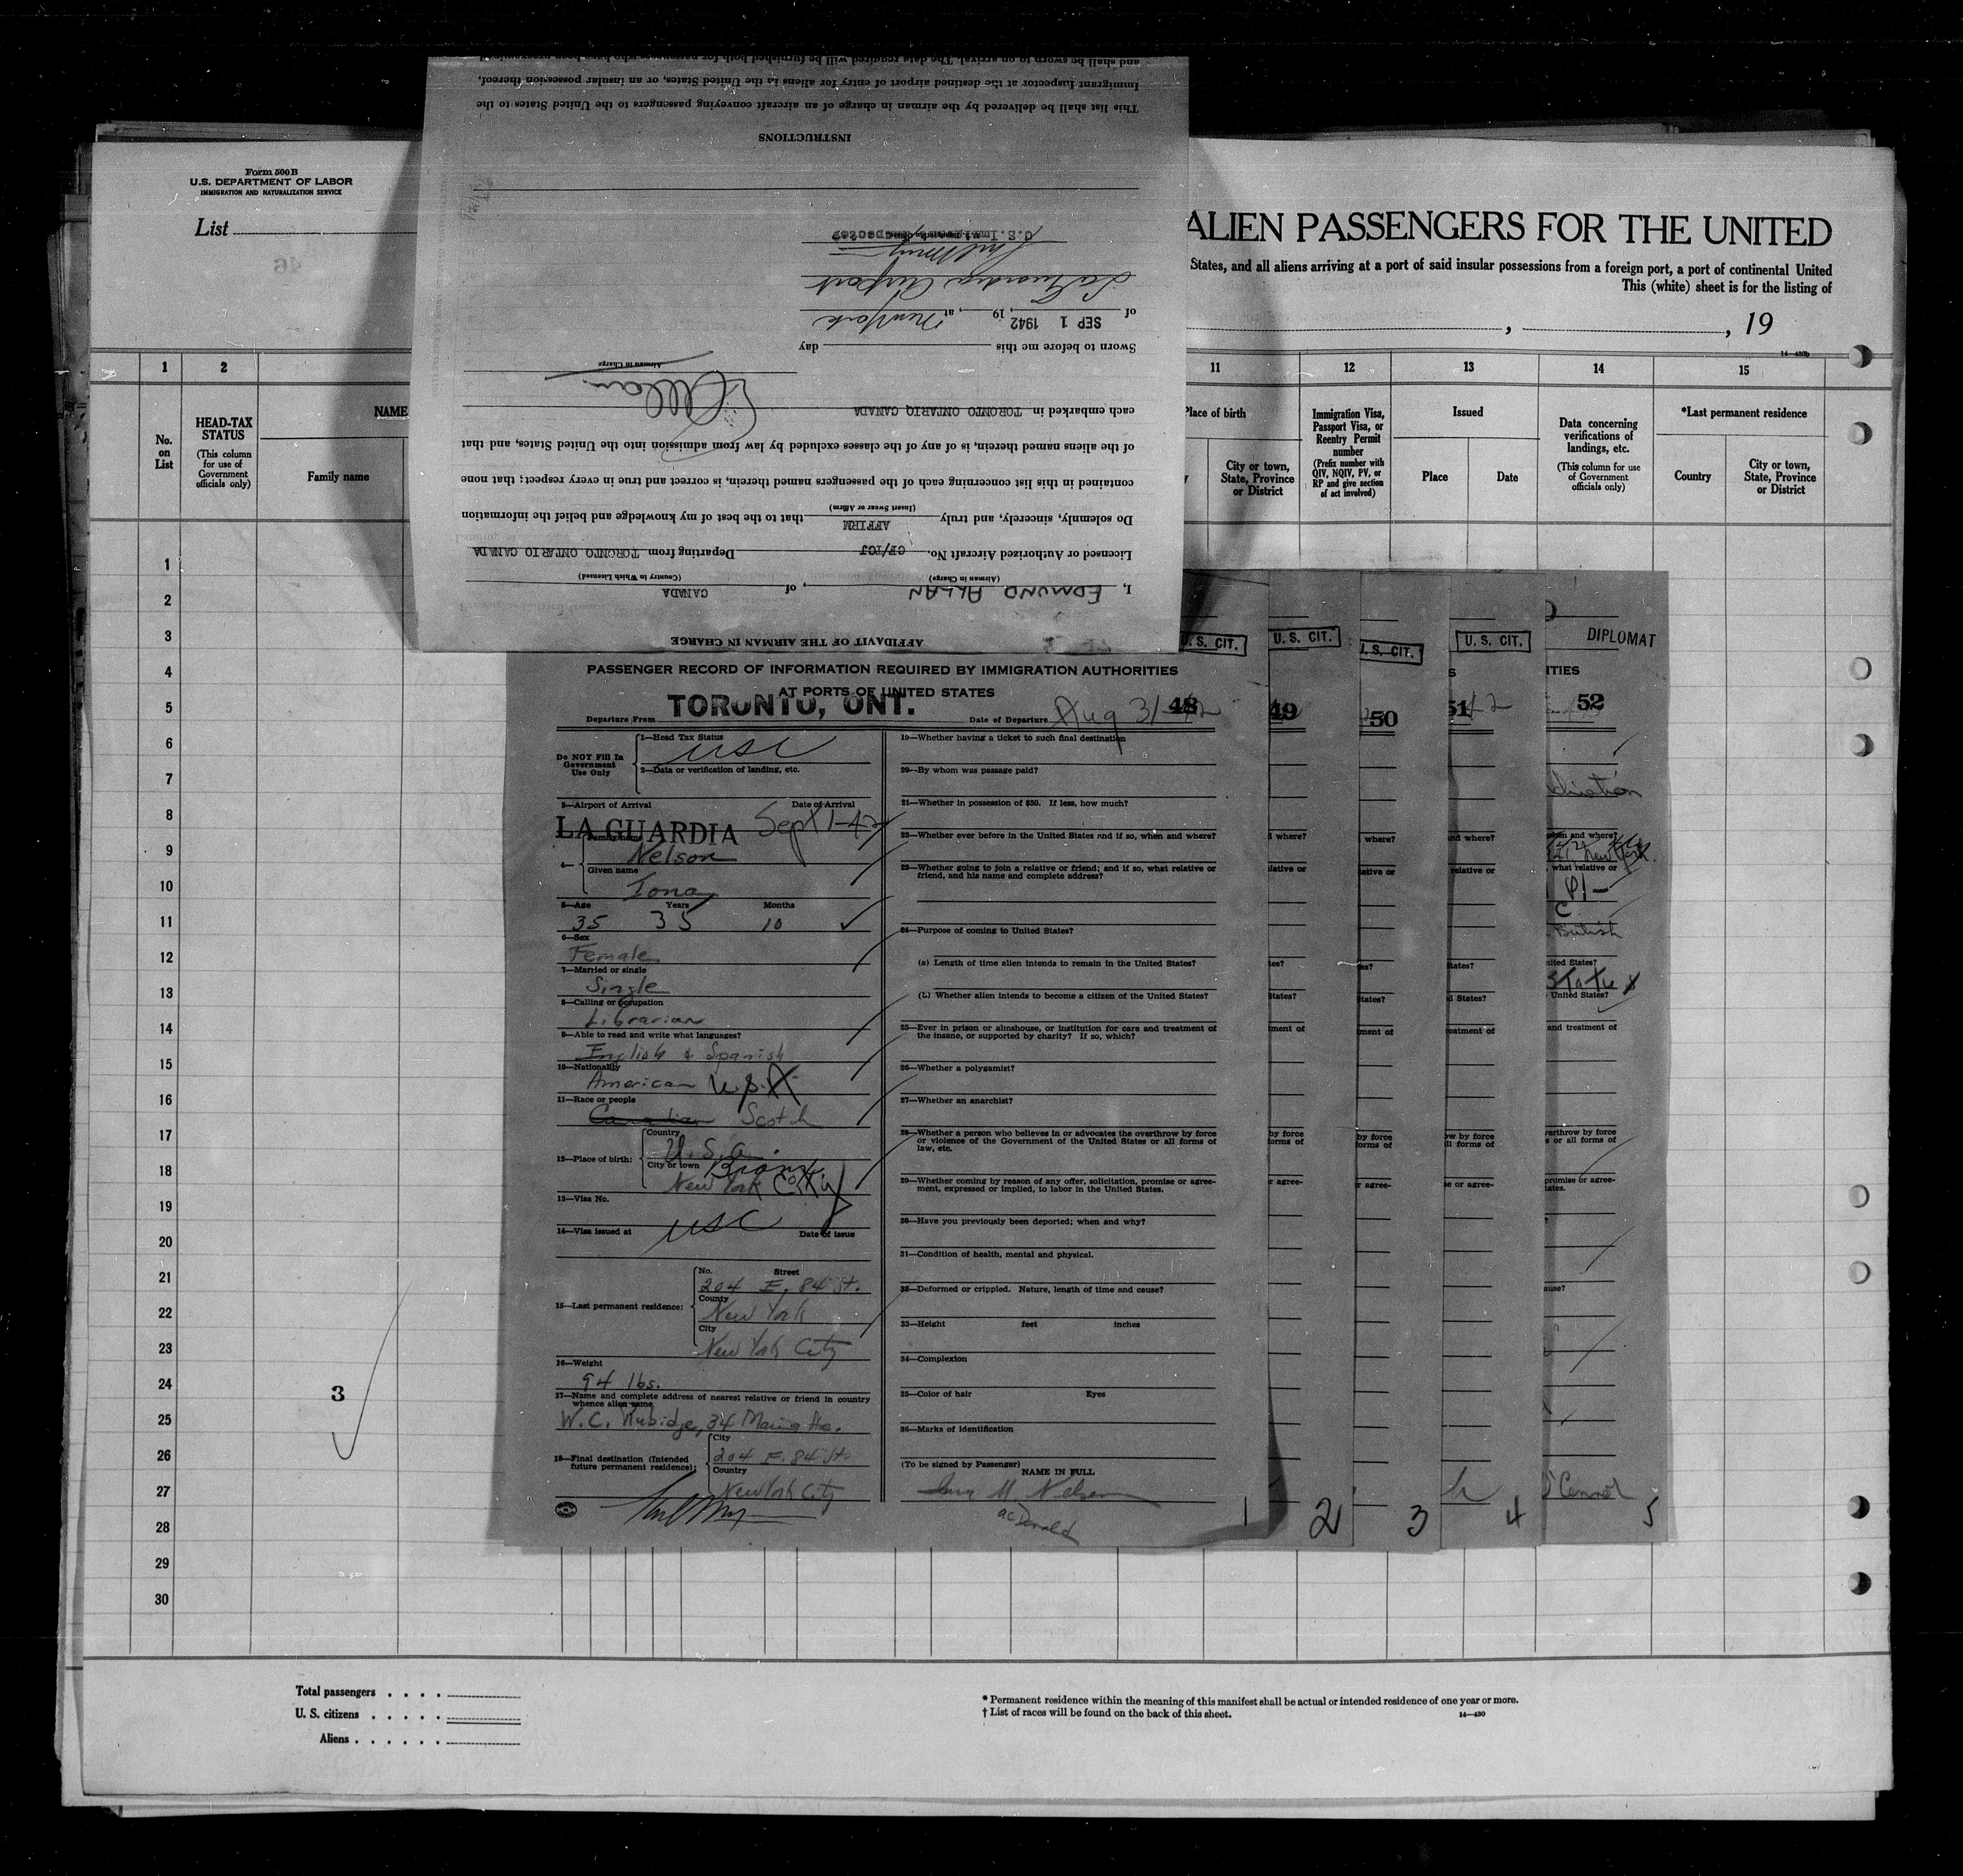 Form 500B
U.S. DEPARTMENT OF LABOR
IMMIGRATION AND NATURALIZATION SERVICE
List
ALIEN PASSENGERS FOR THE UNITED
States, and all aliens arriving at a port of said insular possessions from a foreign port, a port of continental United
This (white) sheet is for the listing of
, , 19
14—430b
1 2 11 12 13 14 15
No. on List
HEAD-TAX STATUS
(This column for use of Government officials only)
NAME
Family name
Place of birth
City or town, State, Province or District
Immigration Visa, Passport Visa, or Reentry Permit number
(Prefix number with QIV, NQIV, PV, or RP and give section of act involved)
Issued
Place Date
Data concerning verifications of landings, etc.
(This column for use of Government officials only)
*Last permanent residence
Country
City or town, State, Province or District
1
2
3
4
5
6
7
8
9
10
11
12
13
14
15
16
17
18
19
20
21
22
23
24
25
26
27
28
29
30
3
Total passengers . . . .
U. S. citizens . . . . .
Aliens . . . . . .
* Permanent residence within the meaning of this manifest shall be actual or intended residence of one year or more.
† List of races will be found on the back of this sheet.
14—430
AFFIDAVIT OF THE AIRMAN IN CHARGE
I, EDMUND ALLAN, of CANADA
(Airman in Charge) (Country in Which Licensed)
Licensed or Authorized Aircraft No. CF/TCJ Departing from TORONTO ONTARIO CANADA
Do solemnly, sincerely, and truly AFFIRM that to the best of my knowledge and belief the information
(Insert Swear or Affirm)
contained in this list concerning each of the passengers named therein, is correct and true in every respect; that none
of the aliens named therein, is of any of the classes excluded by law from admission into the United States, and that
each embarked in TORONTO ONTARIO CANADA
E Allan
Airman in Charge
Sworn to before me this day
of SEP 1 1942, 19 , at New York
La Guardia Airport
U.S. Immigrant Inspector
INSTRUCTIONS
This list shall be delivered by the airman in charge of an aircraft conveying passengers to the United States to the
Immigrant Inspector at the destined airport of entry for aliens in the United States, or an insular possession thereof,
and shall be sworn to on arrival. The data required will be furnished both for passengers who have been
PASSENGER RECORD OF INFORMATION REQUIRED BY IMMIGRATION AUTHORITIES
AT PORTS OF UNITED STATES
U. S. CIT.
Departure From TORONTO, ONT. Date of Departure Aug 31-42 48
Do NOT Fill In Government Use Only
1—Head Tax Status
USC
2—Data or verification of landing, etc.
3—Airport of Arrival Date of Arrival
LA GUARDIA Sept 1-42
4— Family name
Nelson
Given name
Iona
5—Age Years Months
35 35 10
6—Sex
Female
7—Married or single
Single
8—Calling or occupation
Librarian
9—Able to read and write what languages?
English & Spanish
10—Nationality
American U.S.A
11—Race or people
Canadian Scotch
12—Place of birth:
Country
U.S.A.
City or town Bronx
New York City
13—Visa No.
14—Visa issued at USC Date of issue
15—Last permanent residence:
No. Street
204 E. 84 St.
County
New York
City
New York City
16—Weight
94 lbs.
17—Name and complete address of nearest relative or friend in country
whence alien came
W.C. Rubidge, 34 Ave.
18—Final destination (Intended future permanent residence):
City
204 E. 84 St.
Country
New York City
19—Whether having a ticket to such final destination
20—By whom was passage paid?
21—Whether in possession of $50. If less, how much?
22—Whether ever before in the United States and if so, when and where?
23—Whether going to join a relative or friend; and if so, what relative or
friend, and his name and complete address?
24—Purpose of coming to United States?
(a) Length of time alien intends to remain in the United States?
(b) Whether alien intends to become a citizen of the United States?
25—Ever in prison or almshouse, or institution for care and treatment of
the insane, or supported by charity? If so, which?
26—Whether a polygamist?
27—Whether an anarchist?
28—Whether a person who believes in or advocates the overthrow by force
or violence of the Government of the United States or all forms of
law, etc.
29—Whether coming by reason of any offer, solicitation, promise or agree-
ment, expressed or implied, to labor in the United States.
30—Have you previously been deported; when and why?
31—Condition of health, mental and physical.
32—Deformed or crippled. Nature, length of time and cause?
33—Height feet inches
34—Complexion
35—Color of hair Eyes
36—Marks of identification
(To be signed by Passenger)
NAME IN FULL
Iona M. Nelson
acDonald
1
U. S. CIT.
49
2
U. S. CIT.
50
3
U. S. CIT.
51
4
DIPLOMAT
52
New York
British
States
O'Connor
5